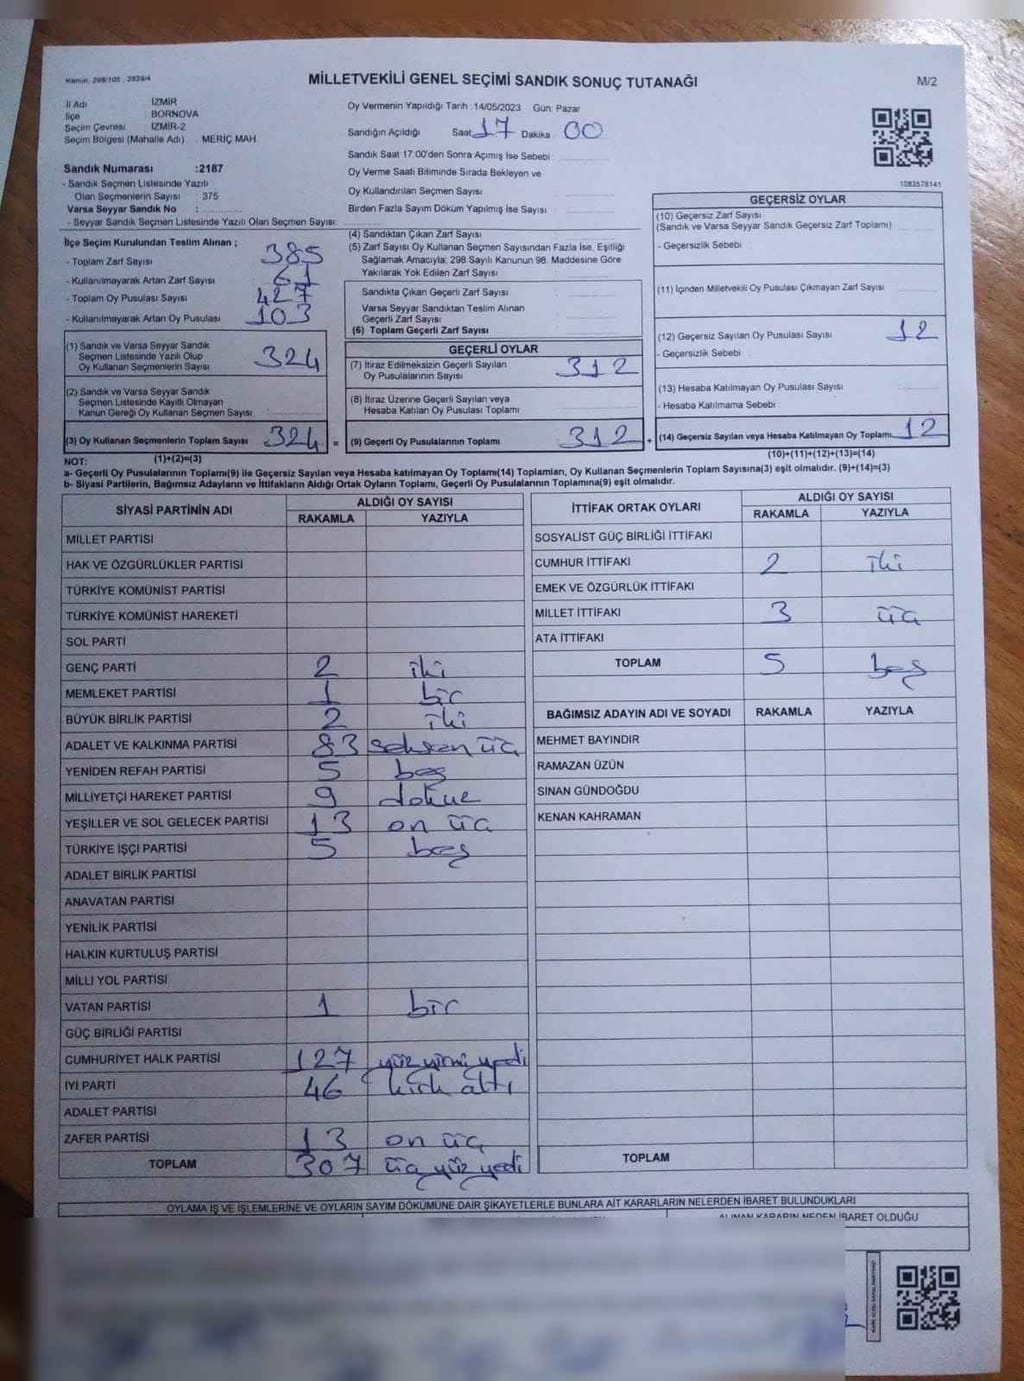 Kanun, 298/105 , 2839/4
MİLLETVEKİLİ GENEL SEÇİMİ SANDIK SONUÇ TUTANAĞI
M/2
İl Adı İZMİR
İlçe BORNOVA
Seçim Çevresi İZMİR-2
Seçim Bölgesi (Mahalle Adı) : MERİÇ MAH
Oy Vermenin Yapıldığı Tarih :14/05/2023 Gün: Pazar
Sandığın Açıldığı Saat 17 Dakika 00
Sandık Saat 17:00'den Sonra Açımış İse Sebebi :
Oy Verme Saati Bitiminde Sırada Bekleyen ve
Oy Kullandırılan Seçmen Sayısı
Birden Fazla Sayım Döküm Yapılmış İse Sayısı
1083578141
Sandık Numarası :2187
- Sandık Seçmen Listesinde Yazılı
Olan Seçmenlerin Sayısı : 375
Varsa Seyyar Sandık No :
- Seyyar Sandık Seçmen Listesinde Yazılı Olan Seçmen Sayısı:
İlçe Seçim Kurulundan Teslim Alınan ;
- Toplam Zarf Sayısı 385
- Kullanılmayarak Artan Zarf Sayısı 61
- Toplam Oy Pusulası Sayısı 427
- Kullanılmayarak Artan Oy Pusulası 103
(1) Sandık ve Varsa Seyyar Sandık
Seçmen Listesinde Yazılı Olup
Oy Kullanan Seçmenlerin Sayısı 324
(2) Sandık ve Varsa Seyyar Sandık
Seçmen Listesinde Kayıtlı Olmayan
Kanun Gereği Oy Kullanan Seçmen Sayısı :
(3) Oy Kullanan Seçmenlerin Toplam Sayısı 324 =
(1)+(2)=(3)
(4) Sandıktan Çıkan Zarf Sayısı
(5) Zarf Sayısı Oy Kullanan Seçmen Sayısından Fazla İse, Eşitliği
Sağlamak Amacıyla; 298 Sayılı Kanunun 98. Maddesine Göre
Yakılarak Yok Edilen Zarf Sayısı :
Sandıkta Çıkan Geçerli Zarf Sayısı
Varsa Seyyar Sandıktan Teslim Alınan
Geçerli Zarf Sayısı
(6) Toplam Geçerli Zarf Sayısı
GEÇERLİ OYLAR
(7) İtiraz Edilmeksizin Geçerli Sayılan
Oy Pusulalarının Sayısı 312
(8) İtiraz Üzerine Geçerli Sayılan veya
Hesaba Katılan Oy Pusulası Toplamı
(9) Geçerli Oy Pusulalarının Toplamı 312 +
GEÇERSİZ OYLAR
(10) Geçersiz Zarf Sayısı
(Sandık ve Varsa Seyyar Sandık Geçersiz Zarf Toplamı)
- Geçersizlik Sebebi :
(11) İçinden Milletvekili Oy Pusulası Çıkmayan Zarf Sayısı
(12) Geçersiz Sayılan Oy Pusulası Sayısı 12
- Geçersizlik Sebebi :
(13) Hesaba Katılmayan Oy Pusulası Sayısı
- Hesaba Katılmama Sebebi :
(14) Geçersiz Sayılan veya Hesaba Katılmayan Oy Toplamı 12
(10)+(11)+(12)+(13)=(14)
NOT:
a- Geçerli Oy Pusulalarının Toplamı(9) ile Geçersiz Sayılan veya Hesaba katılmayan Oy Toplamı(14) Toplamları, Oy Kullanan Seçmenlerin Toplam Sayısına(3) eşit olmalıdır. (9)+(14)=(3)
b- Siyasi Partilerin, Bağımsız Adayların ve İttifakların Aldığı Ortak Oyların Toplamı, Geçerli Oy Pusulalarının Toplamına(9) eşit olmalıdır.
SİYASİ PARTİNİN ADI ALDIĞI OY SAYISI
RAKAMLA YAZIYLA
MİLLET PARTİSİ
HAK VE ÖZGÜRLÜKLER PARTİSİ
TÜRKİYE KOMÜNİST PARTİSİ
TÜRKİYE KOMÜNİST HAREKETİ
SOL PARTİ
GENÇ PARTİ 2 iki
MEMLEKET PARTİSİ 1 bir
BÜYÜK BİRLİK PARTİSİ 2 iki
ADALET VE KALKINMA PARTİSİ 83 seksen üç
YENİDEN REFAH PARTİSİ 5 beş
MİLLİYETÇİ HAREKET PARTİSİ 9 dokuz
YEŞİLLER VE SOL GELECEK PARTİSİ 13 on üç
TÜRKİYE İŞÇİ PARTİSİ 5 beş
ADALET BİRLİK PARTİSİ
ANAVATAN PARTİSİ
YENİLİK PARTİSİ
HALKIN KURTULUŞ PARTİSİ
MİLLİ YOL PARTİSİ
VATAN PARTİSİ 1 bir
GÜÇ BİRLİĞİ PARTİSİ
CUMHURİYET HALK PARTİSİ 127 yüz yirmi yedi
İYİ PARTİ 46 kırk altı
ADALET PARTİSİ
ZAFER PARTİSİ 13 on üç
TOPLAM 307 üç yüz yedi
İTTİFAK ORTAK OYLARI ALDIĞI OY SAYISI
RAKAMLA YAZIYLA
SOSYALİST GÜÇ BİRLİĞİ İTTİFAKI
CUMHUR İTTİFAKI 2 iki
EMEK VE ÖZGÜRLÜK İTTİFAKI
MİLLET İTTİFAKI 3 üç
ATA İTTİFAKI
TOPLAM 5 beş
BAĞIMSIZ ADAYIN ADI VE SOYADI RAKAMLA YAZIYLA
MEHMET BAYINDIR
RAMAZAN ÜZÜN
SİNAN GÜNDOĞDU
KENAN KAHRAMAN
TOPLAM
OYLAMA İŞ VE İŞLEMLERİNE VE OYLARIN SAYIM DÖKÜMÜNE DAİR ŞİKAYETLERLE BUNLARA AİT KARARLARIN NELERDEN İBARET BULUNDUKLARI
ALINAN KARARIN NEDEN İBARET OLDUĞU